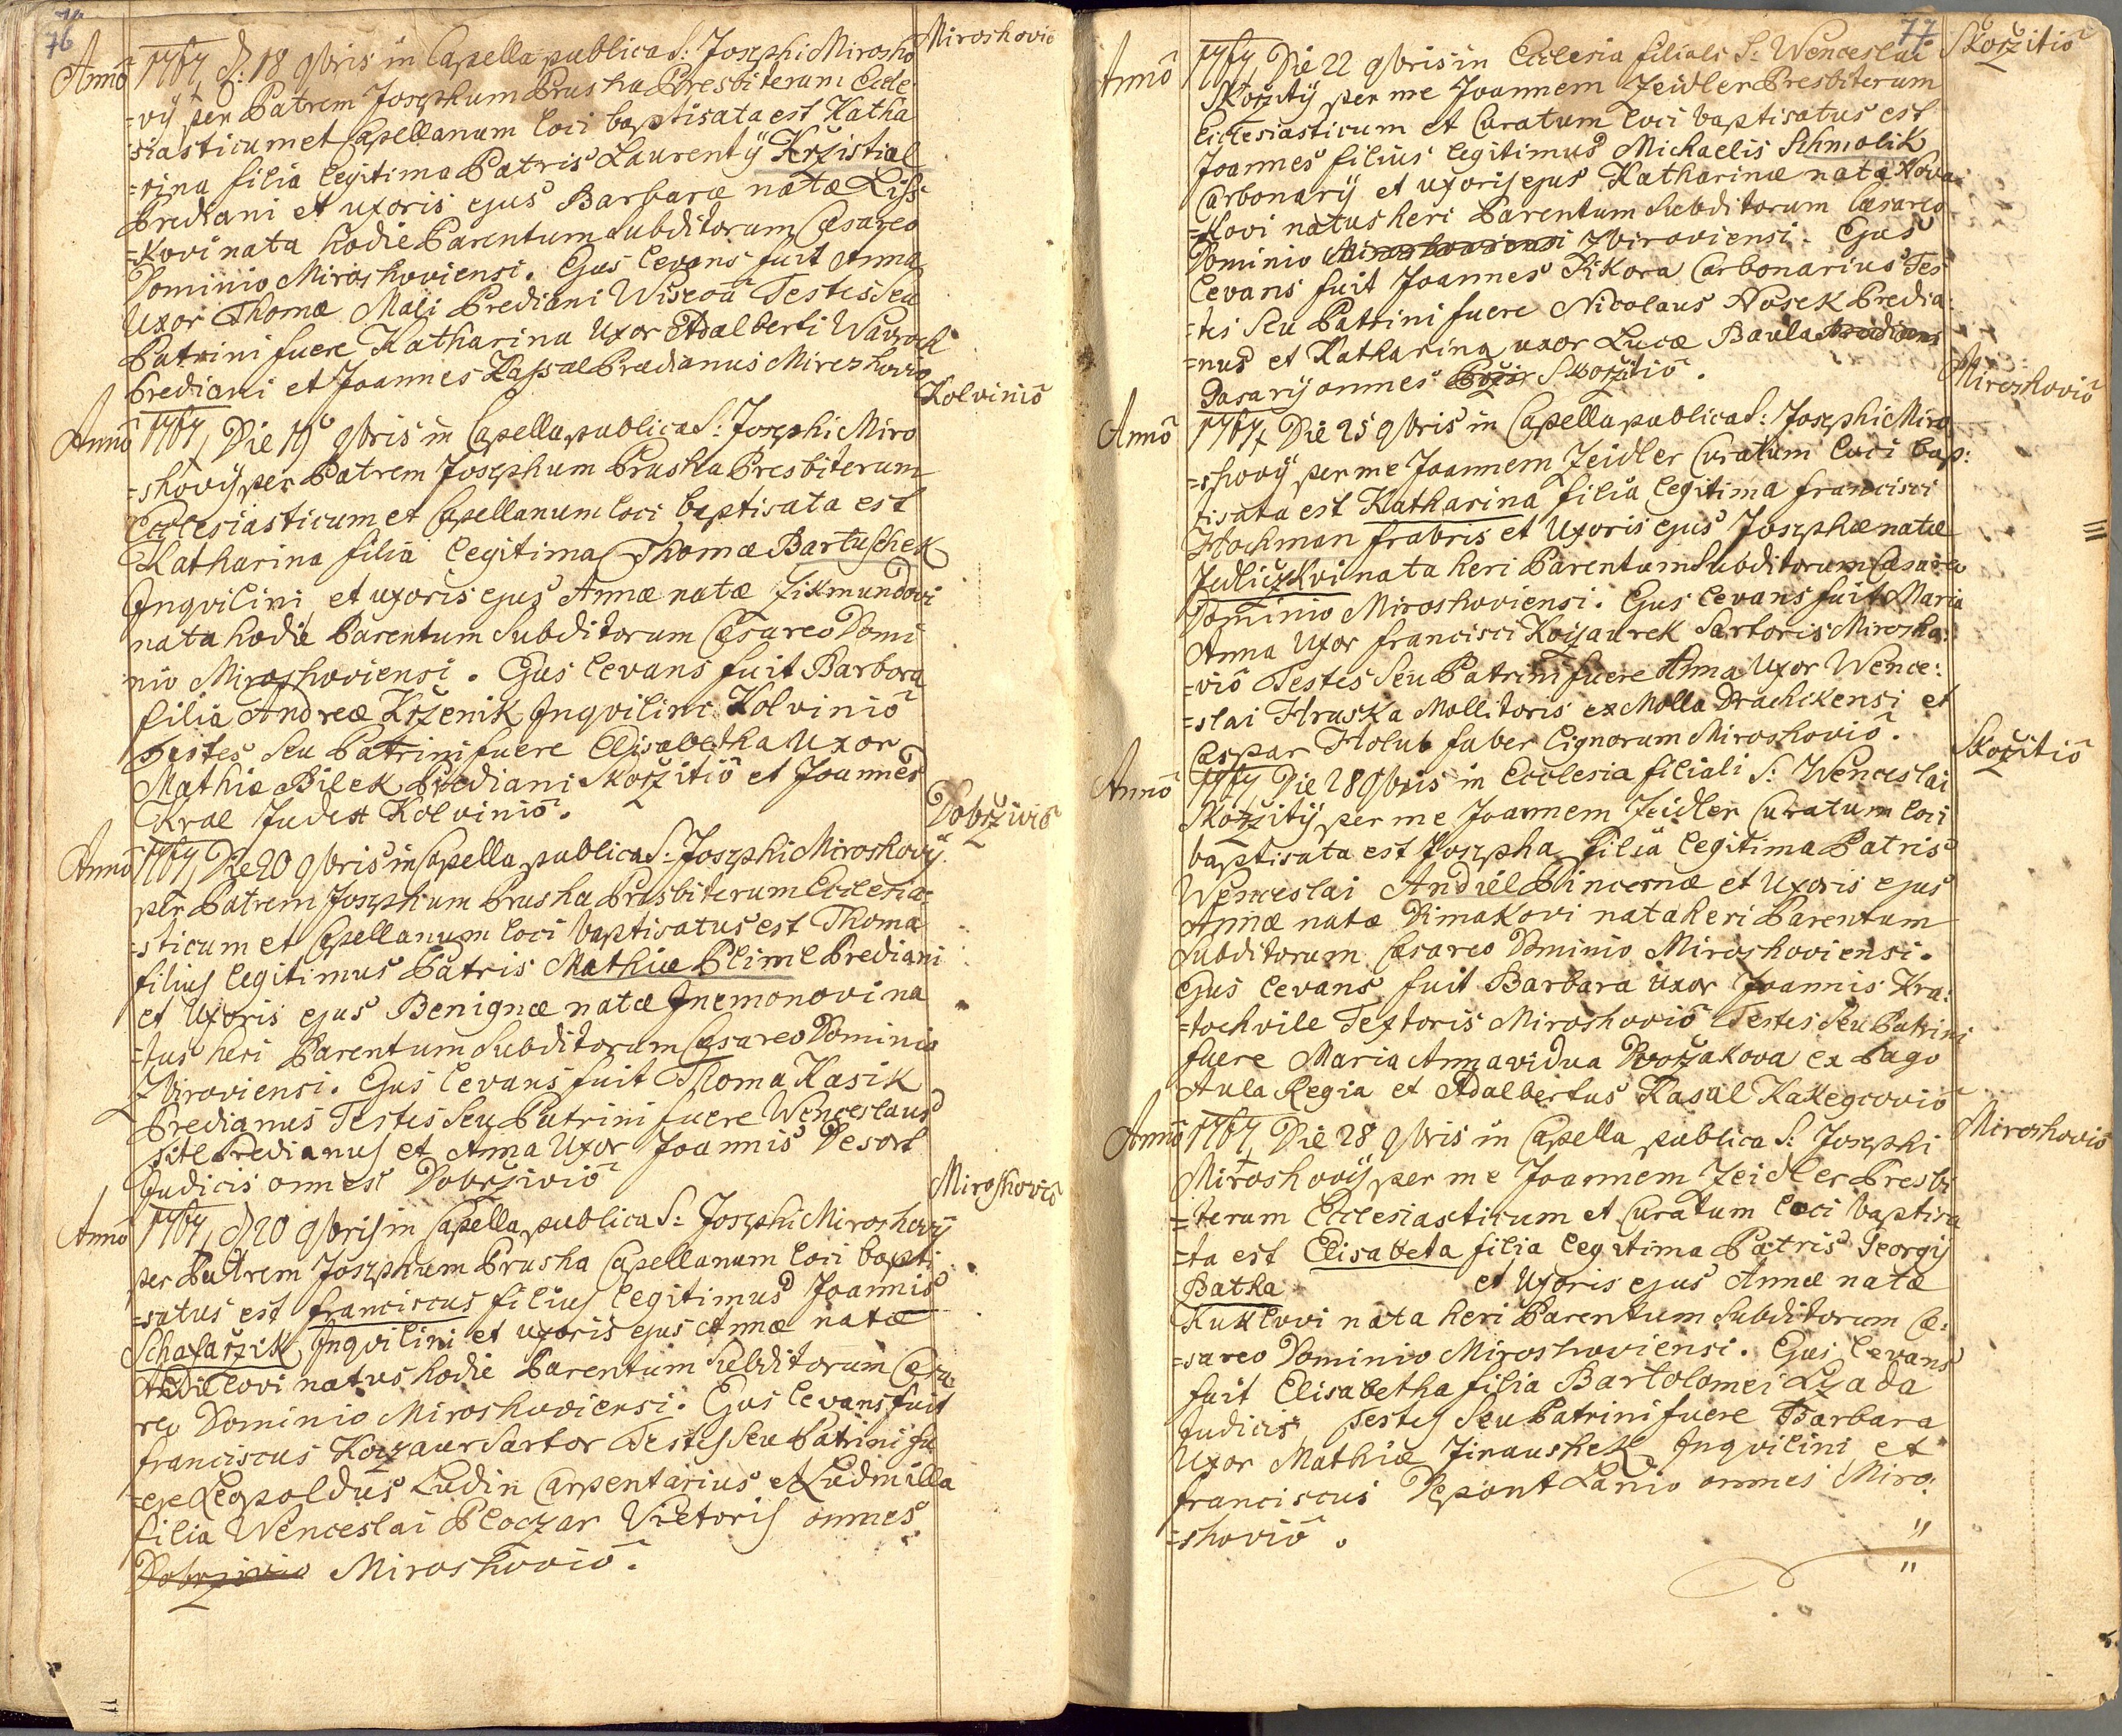 76
Miroshoviō
Annō 1767, d: 18 9bris in Capella publica S: Josephi Mirosho
=vÿ per Patrem Josephum Prusha Presbiterum Eccle
=siasticum et Capellanum loci baptisata est Katha
=rina filia legitima Patris Laurentÿ Kržistial
Prediani et uxoris ejus Barbaræ natæ Liss
=kovi nata hodie Parentum Subditorum Cæsareo
Dominio Miroshoviensi. Ejus levans fuit Anna
Uxor Thomæ Mali Prediani Testes Seu
Patrini fuere Katharina Uxor Adalberti Wavroch
Prediani et Joannes Kassal Prædianus Miroshoviō
Kolviniō
Annō 1767, Die 19 9bris in Capella publica S: Josephi Miro
=shovÿ per Patrem Josephum Prusha Presbiterum
Ecclesiasticum et Capellanum loci baptisata est
Katharina filia legitima Thomæ Bartuschek
Inqvilini et uxoris ejus Annæ natæ Zikmundovi
nata hodie Parentum Subditorum Cæsareo Domi
nio Miroshoviensi. Ejus levans fuit Barbora
filia Andreæ Krženik Inqvilini Kolviniō
Testes Seu Patrini fuere Elisabetha Uxor
Mathiæ Bilek Prediani Skoržitiō et Joannes
Kral Judex Kolviniō.
Dobrživiō
Annō 1767, Die 20 9bris in Capella publica S: Josephi Miroshovÿ
per Patrem Josephum Prusha Presbiterum Ecclesia=
=sticum et Capellanum loci baptisatus est Thoma
filius legitimus Patris Mathiæ Pliml Prediani
et Uxoris ejus Benignæ natæ Gnemonovi na
=tus heri Parentum Subditorum Cæsareo Dominio
Zbiroviensi. Ejus levans fuit Thoma Kasik
Predianus Testes Seu Patrini fuere Wenceslaus
Predianus et Anna Uxor Joannis Desort
Judicis omnes Dobrživiō
Miroshoviō
Annō 1767, d 20 9bris in Capella publica S: Josephi Miroshovÿ
per Patrem Josephum Prusha Capellanum loci bapti
=satus est Franciscus filius legitimus Joannis
Schafaržik Inqvilini et uxoris ejus Annæ natæ
Andillovi natus hodie Parentum Subditorum Cæsa
reo Dominio Miroshoviensi. Ejus levans fuit
Franciscus Koczaur Sartor Testes Seu Patrini fu
=ere Leopoldus Ludin Carpentarius et Ludmilla
filia Wenceslai Ploczar Vietoris omnes
Dobrzivio Miroshoviō.
77
Skoržitiō
Annō 1767, Die 22 9bris in Ecclesia filiali S: Wenceslai
Skoržitÿ per me Joannem Zeidler Presbiterum
Ecclesiasticum et Curatum loci baptisatus est
Joannes filius legitimus Michaelis Schmolik
Carbonarÿ et uxoris ejus Katharinæ natæ Nova=
=kovi natus heri Parentum Subditorum Cæsareo
Dominio Miroshoviensi Zbiroviensi. Ejus
levans fuit Joannes Sikora Carbonarius Tes
=tes Seu Patrini fuere Nicolaus Nosek Predia:
=nus et Katharina uxor Lucæ Baula Prediani
Casarÿ omnes Skoržitiō.
Miroshoviō
Annō 1767, Die 25 9bris in Capella publica S: Josephi Miro
=shovÿ per me Joannem Zeidler Curatum loci bap:
tisata est Katharina filia legitima Francisci
Hochman fabris et Uxoris ejus Josephæ natæ
Jedliczkvi nata heri Parentum Subditorum Cæsareo
Dominio Miroshoviensi. Ejus levans fuit Maria
Anna Uxor Francisci Koczaurek Sartoris Mirosho:
=viō Testes Seu Patrini fuere Anna Uxor Wence:
=slai Hruska Mollitoris ex Molla Drachkensi et
Caspar Holub faber lignorum Miroshoviō.
Skoržitiō
Annō 1767, Die 28 9bris in Ecclesia filiali S: Wenceslai
Skoržitÿ per me Joannem Zeidler Curatum loci
baptisata est Josepha filia legitima Patris
Wenceslai Andrël Pincernæ et Uxoris ejus
Annæ natæ Dimakovi nata heri Parentum
Subditorum Cæsareo Dominio Miroshoviensi.
Ejus levans fuit Barbara uxor Joannis Kra:
=tochvile Textoris Miroshoviō Testes Seu Patrini
fuere Maria Anna vidua Dvoržakova ex Pago
Aula Regia et Adalbertus Kasal Kakegcoviō
Miroshoviō
Annō 1767, Die 28 9bris in Capella publica S: Josephi
Miroshovÿ per me Joannem Zeidler Presbi
=terum Ecclesiasticum et Curatum loci baptisa
=ta est Elisabeta filia legitima Patris Georgÿ
Batka et Uxoris ejus Annæ natæ
Kuklovi nata heri Parentum Subditorum Cæ:
=sareo Dominio Miroshoviensi. Ejus levans
fuit Elisabetha filia Bartolomei Lzada
Judicis, Testes Seu Patrini fuere Barbara
Uxor Mathiæ Jinaushek Inqvilini et
Franciscus Depont Lanio omnes Miro:
=shoviō.